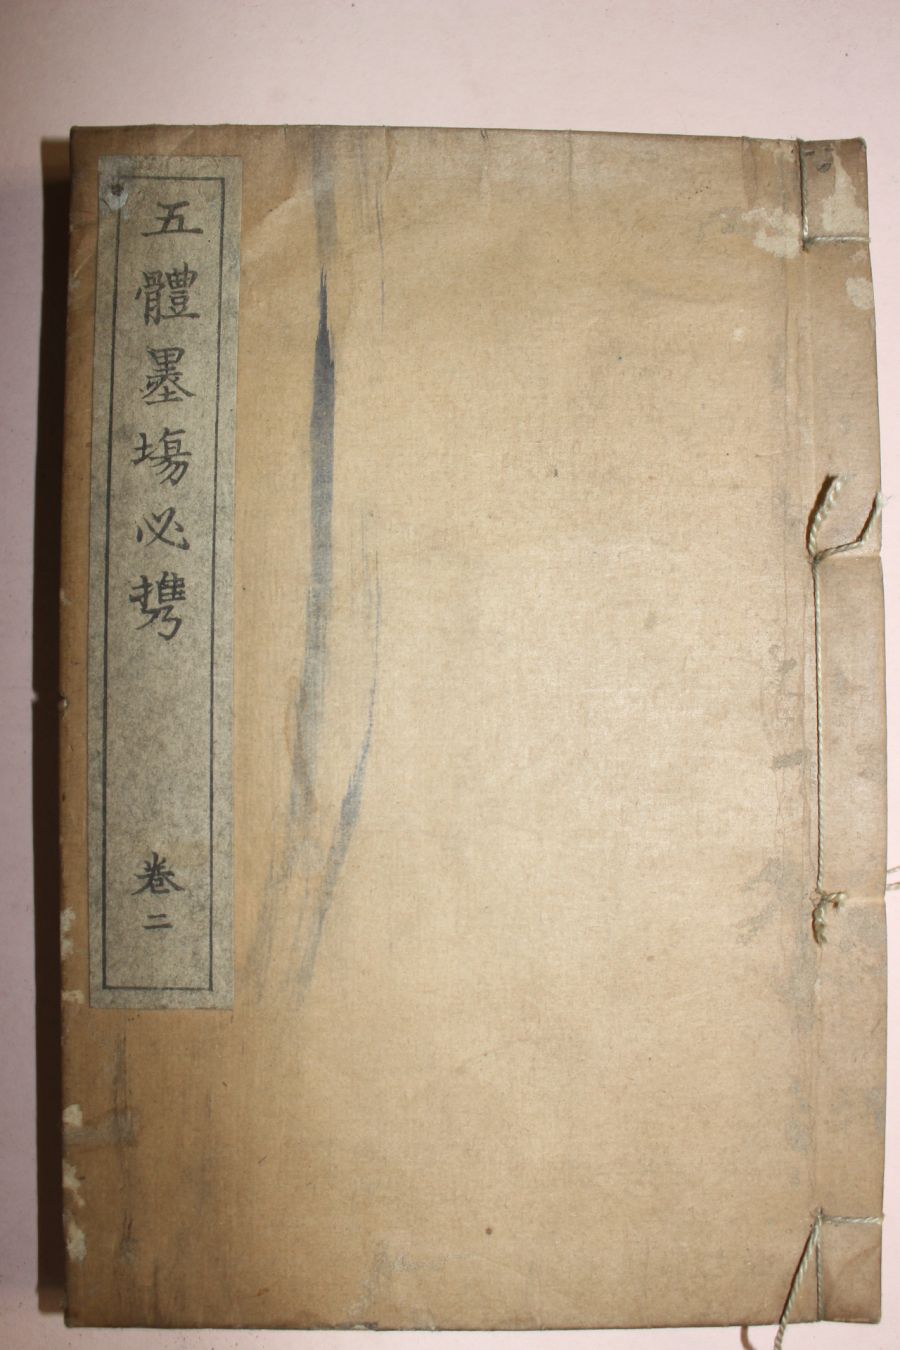 五體墨場必攜
卷二